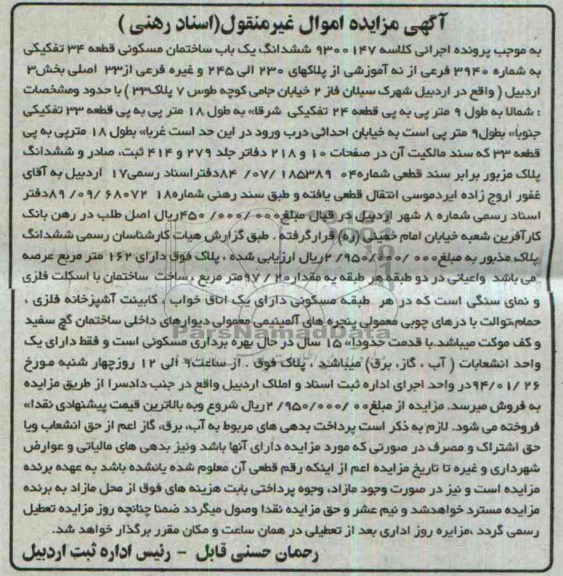 آگهی مزایده اموال غیرمنقول(اسناد رهنی )
به موجب پرونده اجرائی کلاسه ۹۳۰۰۱۴۷ ششدانگ یک باب ساختمان مسکونی قطعه ۳۴ تفکیکی
به شماره ۳۹۴۰ فرعی از نه آموزشی از پلاکهای ۲۳۰ الی ۲۴۵ و غیره فرعی از۳۳ اصلی بخش۳
اردبیل ( واقع در اردبیل شهرک سبلان فاز ۲ خیابان جامی کوچه طوس ۷ پلاک۳۳ ) با حدود ومشخصات
: شمالا به طول ۹ متر پی به پی قطعه ۲۴ تفکیکی شرقا» به طول ۱۸ متر پی به پی قطعه ۳۳ تفکیکی
جنوبا» بطول۹ متر پی است به خیابان احداثی درب ورود در این حد است غربا» بطول ۱۸ مترپی به پی
قطعه ۳۳ که سند مالکیت آن در صفحات ۱۰ و ۲۱۸ دفاتر جلد ۲۷۹ و ۴۱۴ ثبت، صادر و ششدانگ
پلاک مزبور برابر سند قطعی شماره۱۸۵۳۸۹ ۰۴ /۰۷ /۸۴دفتراسناد رسمی۱۷ اردبیل به آقای
غفور اروج زاده ایردموسی انتقال قطعی یافته و طبق سند رهنی شماره۶۸۰۷۲ ۱۸ /۰۹ /۸۹دفتر
اسناد رسمی شماره ۸ شهر اردبیل در قبال مبلغ۴۵۰/۰۰۰/۰۰۰ریال اصل طلب در رهن بانک
کارآفرین شعبه خیابان امام خمینی (ره) قرارگرفته . طبق گزارش هیات کارشناسان رسمی ششدانگ
پلاک مذبور به مبلغ۲/۹۵۰/۰۰۰/۰۰۰ریال ارزیابی شده ، پلاک فوق دارای ۱۶۲ متر مربع عرصه
می باشد واعیانی در دو طبقه هر طبقه به مقدار۹۷/۲۰متر مربع ، ساخت ساختمان با اسکلت فلزی
و نمای سنگی است که در هر طبقه مسکونی دارای یک اتاق خواب ، کابینت آشپزخانه فلزی ،
حمام،توالت با درهای چوبی معمولی، پنجره های آلمینیمی معمولی دیوارهای داخلی ساختمان گچ سفید
و کف موکت میباشد.با قدمت حدودا» ۱۵ سال در حال بهره برداری مسکونی است و فقط دارای یک
واحد انشعابات ( آب ، گاز، برق) میباشد . پلاک فوق . از ساعت۹ الی ۱۲ روزچهار شنبه مورخ
۹۴/۰۱/۲۶در واحد اجرای اداره ثبت اسناد و املاک اردبیل واقع در جنب دادسرا از طریق مزایده
به فروش میرسد. مزایده از مبلغ۲/۹۵۰/۰۰۰/۰۰۰ریال شروع وبه بالاترین قیمت پیشنهادی نقدا»
فروخته می شود. لازم به ذکر است پرداخت بدهی های مربوط به آب، برق، گاز اعم از حق انشعاب ویا
حق اشتراک و مصرف در صورتی که مورد مزایده دارای آنها باشد ونیز بدهی های مالیاتی و عوارض
شهرداری و غیره تا تاریخ مزایده اعم از اینکه رقم قطعی آن معلوم شده یانشده باشد به عهده برنده
مزایده است و نیز در صورت وجود مازاد، وجوه پرداختی بابت هزینه های فوق از محل مازاد به برنده
مزایده مسترد خواهدشد و نیم عشر و حق مزایده نقدا وصول میگردد ضمنا چنانچه روز مزایده تعطیل
رسمی گردد ،مزایره روز اداری بعد از تعطیلی در همان ساعت و مکان مقرر برگذار خواهد شد.
رحمان حسنی قابل - رئیس اداره ثبت اردبیل
ParsNamadData